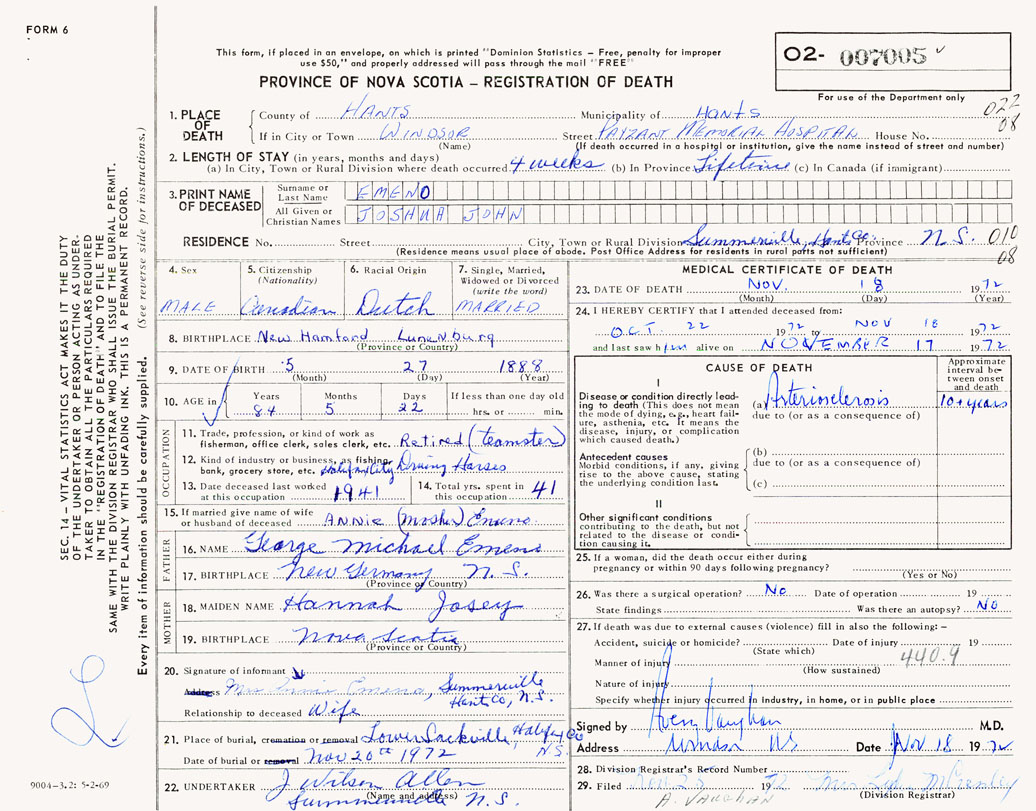 FORM 6
This form, if placed in an envelope, on which is printed "Dominion Statistics – Free, penalty for improper
use $50," and properly addressed will pass through the mail "FREE"
PROVINCE OF NOVA SCOTIA – REGISTRATION OF DEATH
02- 007005
For use of the Department only
022
08
1. PLACE OF DEATH
County of HANTS Municipality of HANTS
If in City or Town WINDSOR Street PAYZANT MEMORIAL HOSPITAL House No.
(Name) (If death occurred in a hospital or institution, give the name instead of street and number)
2. LENGTH OF STAY (in years, months and days)
(a) In City, Town or Rural Division where death occurred 4 weeks (b) In Province Lifetime (c) In Canada (if immigrant)
3. PRINT NAME OF DECEASED
Surname or Last Name EMENO
All Given or Christian Names JOSHUA JOHN
RESIDENCE No. Street City, Town or Rural Division Summerville, Hants Co. Province N.S. 010
08
(Residence means usual place of abode. Post Office Address for residents in rural parts not sufficient)
4. Sex MALE
5. Citizenship (Nationality) Canadian
6. Racial Origin Dutch
7. Single, Married, Widowed or Divorced (write the word) MARRIED
8. BIRTHPLACE New Lunenburg
(Province or Country)
9. DATE OF BIRTH 5 27 1888
(Month) (Day) (Year)
10. AGE in Years 84 Months 5 Days 22 If less than one day old hrs. or min.
OCCUPATION
11. Trade, profession, or kind of work as
fisherman, office clerk, sales clerk, etc. Retired (teamster)
12. Kind of industry or business, as fishing,
bank, grocery store, etc. Halifax City Driving Horses
13. Date deceased last worked
at this occupation 1941
14. Total yrs. spent in
this occupation 41
15. If married give name of wife
or husband of deceased ANNIE (Mosher) Emeno
FATHER
16. NAME George Michael Emeno
17. BIRTHPLACE New Germany N.S.
(Province or Country)
MOTHER
18. MAIDEN NAME Hannah Josey
19. BIRTHPLACE Nova Scotia
(Province or Country)
20. Signature of informant
Address Mrs Annie Emeno, Summerville
Hants Co, N.S.
Relationship to deceased Wife
21. Place of burial, cremation or removal Lower Sackville, Halifax Co
N.S.
Date of burial or removal Nov 20th 1972
22. UNDERTAKER J Wilson Allen
(Name and address)
Summerville N.S.
MEDICAL CERTIFICATE OF DEATH
23. DATE OF DEATH NOV. 18 1972
(Month) (Day) (Year)
24. I HEREBY CERTIFY that I attended deceased from:
OCT. 22 1972 to NOV 18 1972
and last saw him alive on NOVEMBER 17 1972
CAUSE OF DEATH
Approximate interval between onset and death
I
Disease or condition directly leading to death (This does not mean the mode of dying, e.g., heart failure, asthenia, etc. It means the disease, injury, or complication which caused death.)
(a) Arteriosclerosis 10+ years
due to (or as a consequence of)
Antecedent causes
Morbid conditions, if any, giving rise to the above cause, stating the underlying condition last.
(b)
due to (or as a consequence of)
(c)
II
Other significant conditions
contributing to the death, but not related to the disease or condition causing it.
25. If a woman, did the death occur either during
pregnancy or within 90 days following pregnancy?
(Yes or No)
26. Was there a surgical operation? No Date of operation 19
State findings Was there an autopsy? No
27. If death was due to external causes (violence) fill in also the following: –
Accident, suicide or homicide? Date of injury 19
(State which)
440.9
Manner of injury
(How sustained)
Nature of injury
Specify whether injury occurred in industry, in home, or in public place
Signed by Avery Vaughan M.D.
Address Windsor NS Date Nov 18 1972
28. Division Registrar's Record Number
29. Filed Nov 1972
(Division Registrar)
A. Vaughan
SEC. 14 – VITAL STATISTICS ACT MAKES IT THE DUTY
OF THE UNDERTAKER OR PERSON ACTING AS UNDER-
TAKER TO OBTAIN ALL THE PARTICULARS REQUIRED
IN THE "REGISTRATION OF DEATH" AND TO FILE THE
SAME WITH THE DIVISION REGISTRAR WHO SHALL ISSUE BURIAL PERMIT.
WRITE PLAINLY WITH UNFADING INK. THIS IS A PERMANENT RECORD.
Every item of information should be carefully supplied. (See reverse side for instructions.)
9004-3.2: 5-2-69